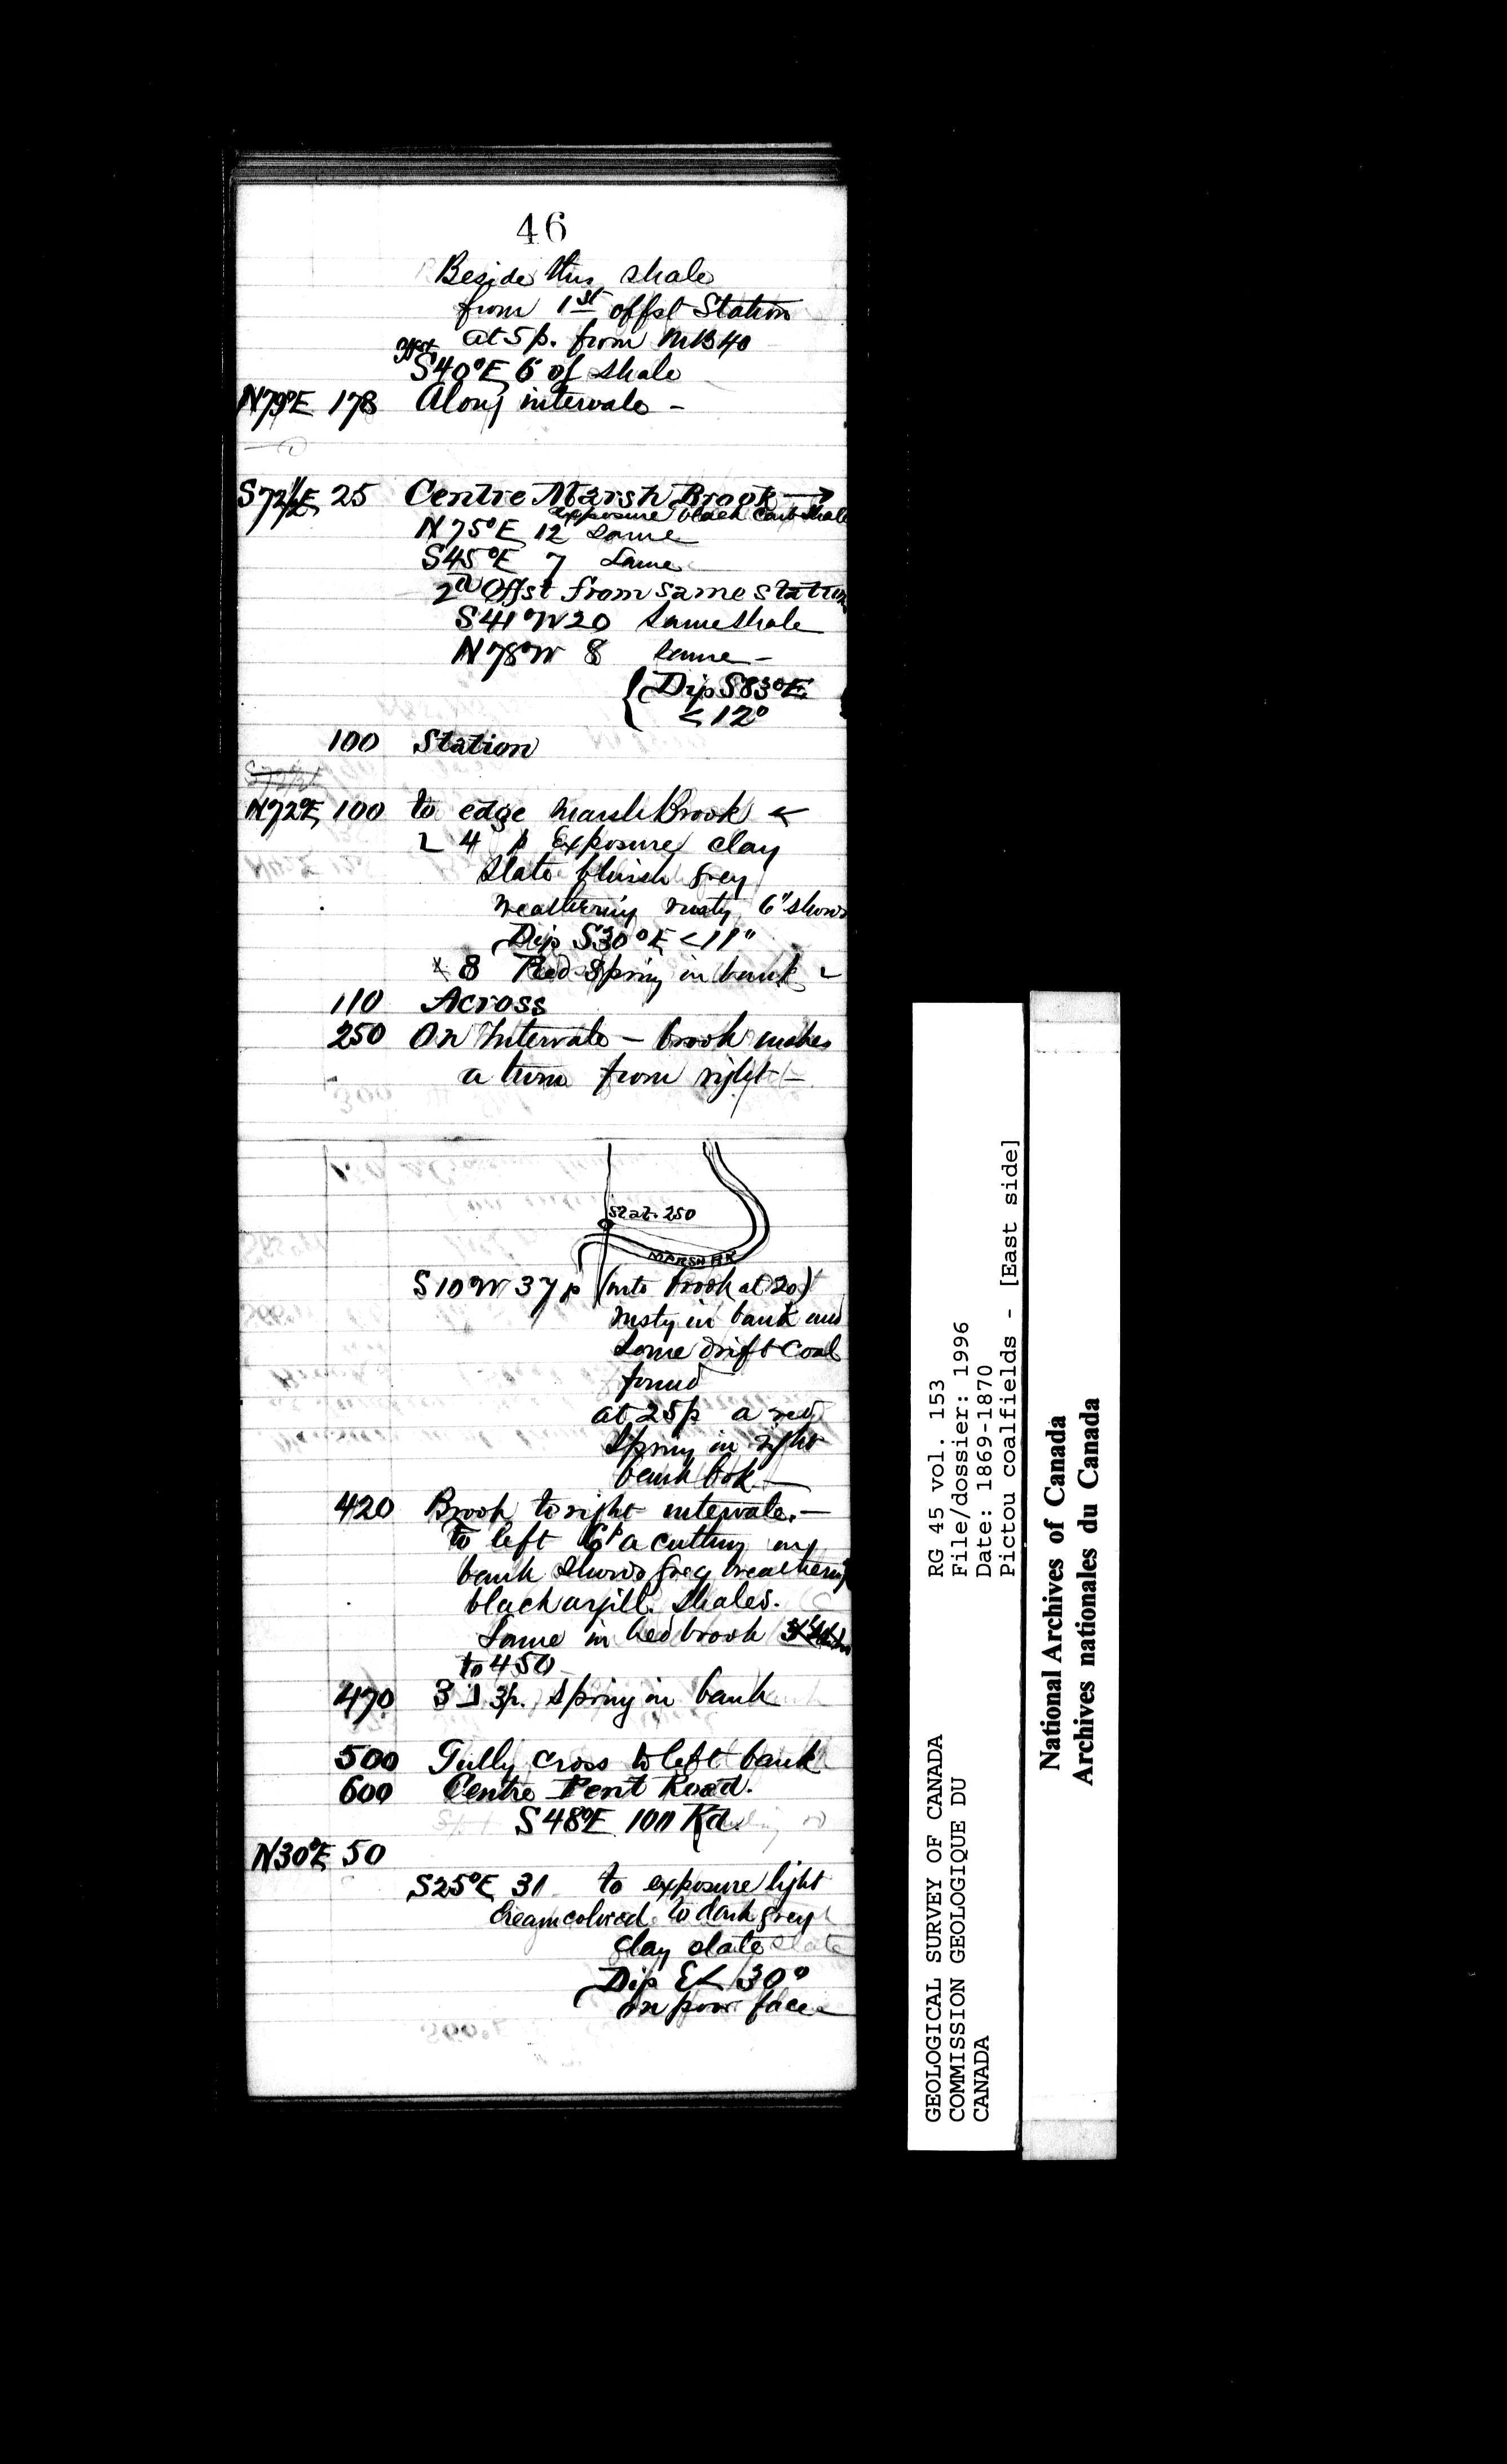 46
Beside this shale
from 1st offst Station
at 5 p. from MB 40
offst
S40°E 6 of shale
N79°E 178 Along intervale -
S72½E 25 Centre Marsh Brook →
exposure black Carb shale
N75°E 12 same
S45°E 7 Same
2nd Offst from same station
S41°W 20 same shale
N78°W 8 same -
{ Dip S83°E
< 12°
100 Station
N72°E 100 to edge Marsh Brook <
4 p Exposure clay
slate bluish grey
weathering rusty 6" shows
Dip S30°E < 11°
8 Red Spring in bank
110 Across
250 On Intervale - brook makes
a turn from right -
Stat. 250
MARSH BK
S10°W 37 p (into brook at 20)
rusty in bank and
some drift Coal
found
at 25 p a red
spring in right
bank bok -
420 Brook to right intervale. -
to left 6p a cutting on
bank shows grey weathering
black argill. shales.
Same in bed brook
to 450
470 3 ⅃ 3p. spring in bank
500 Gully cross to left bank
600 Centre Pent Road.
S48°E 100 Rd.
N30°E 50
S25°E 31 to exposure light
creamcolored to dark grey
clay slate
Dip E < 30°
on poor face
GEOLOGICAL SURVEY OF CANADA
COMMISSION GEOLOGIQUE DU
CANADA
RG 45 vol. 153
File/dossier: 1996
Date: 1869-1870
Pictou coalfields - [East side]
National Archives of Canada
Archives nationales du Canada